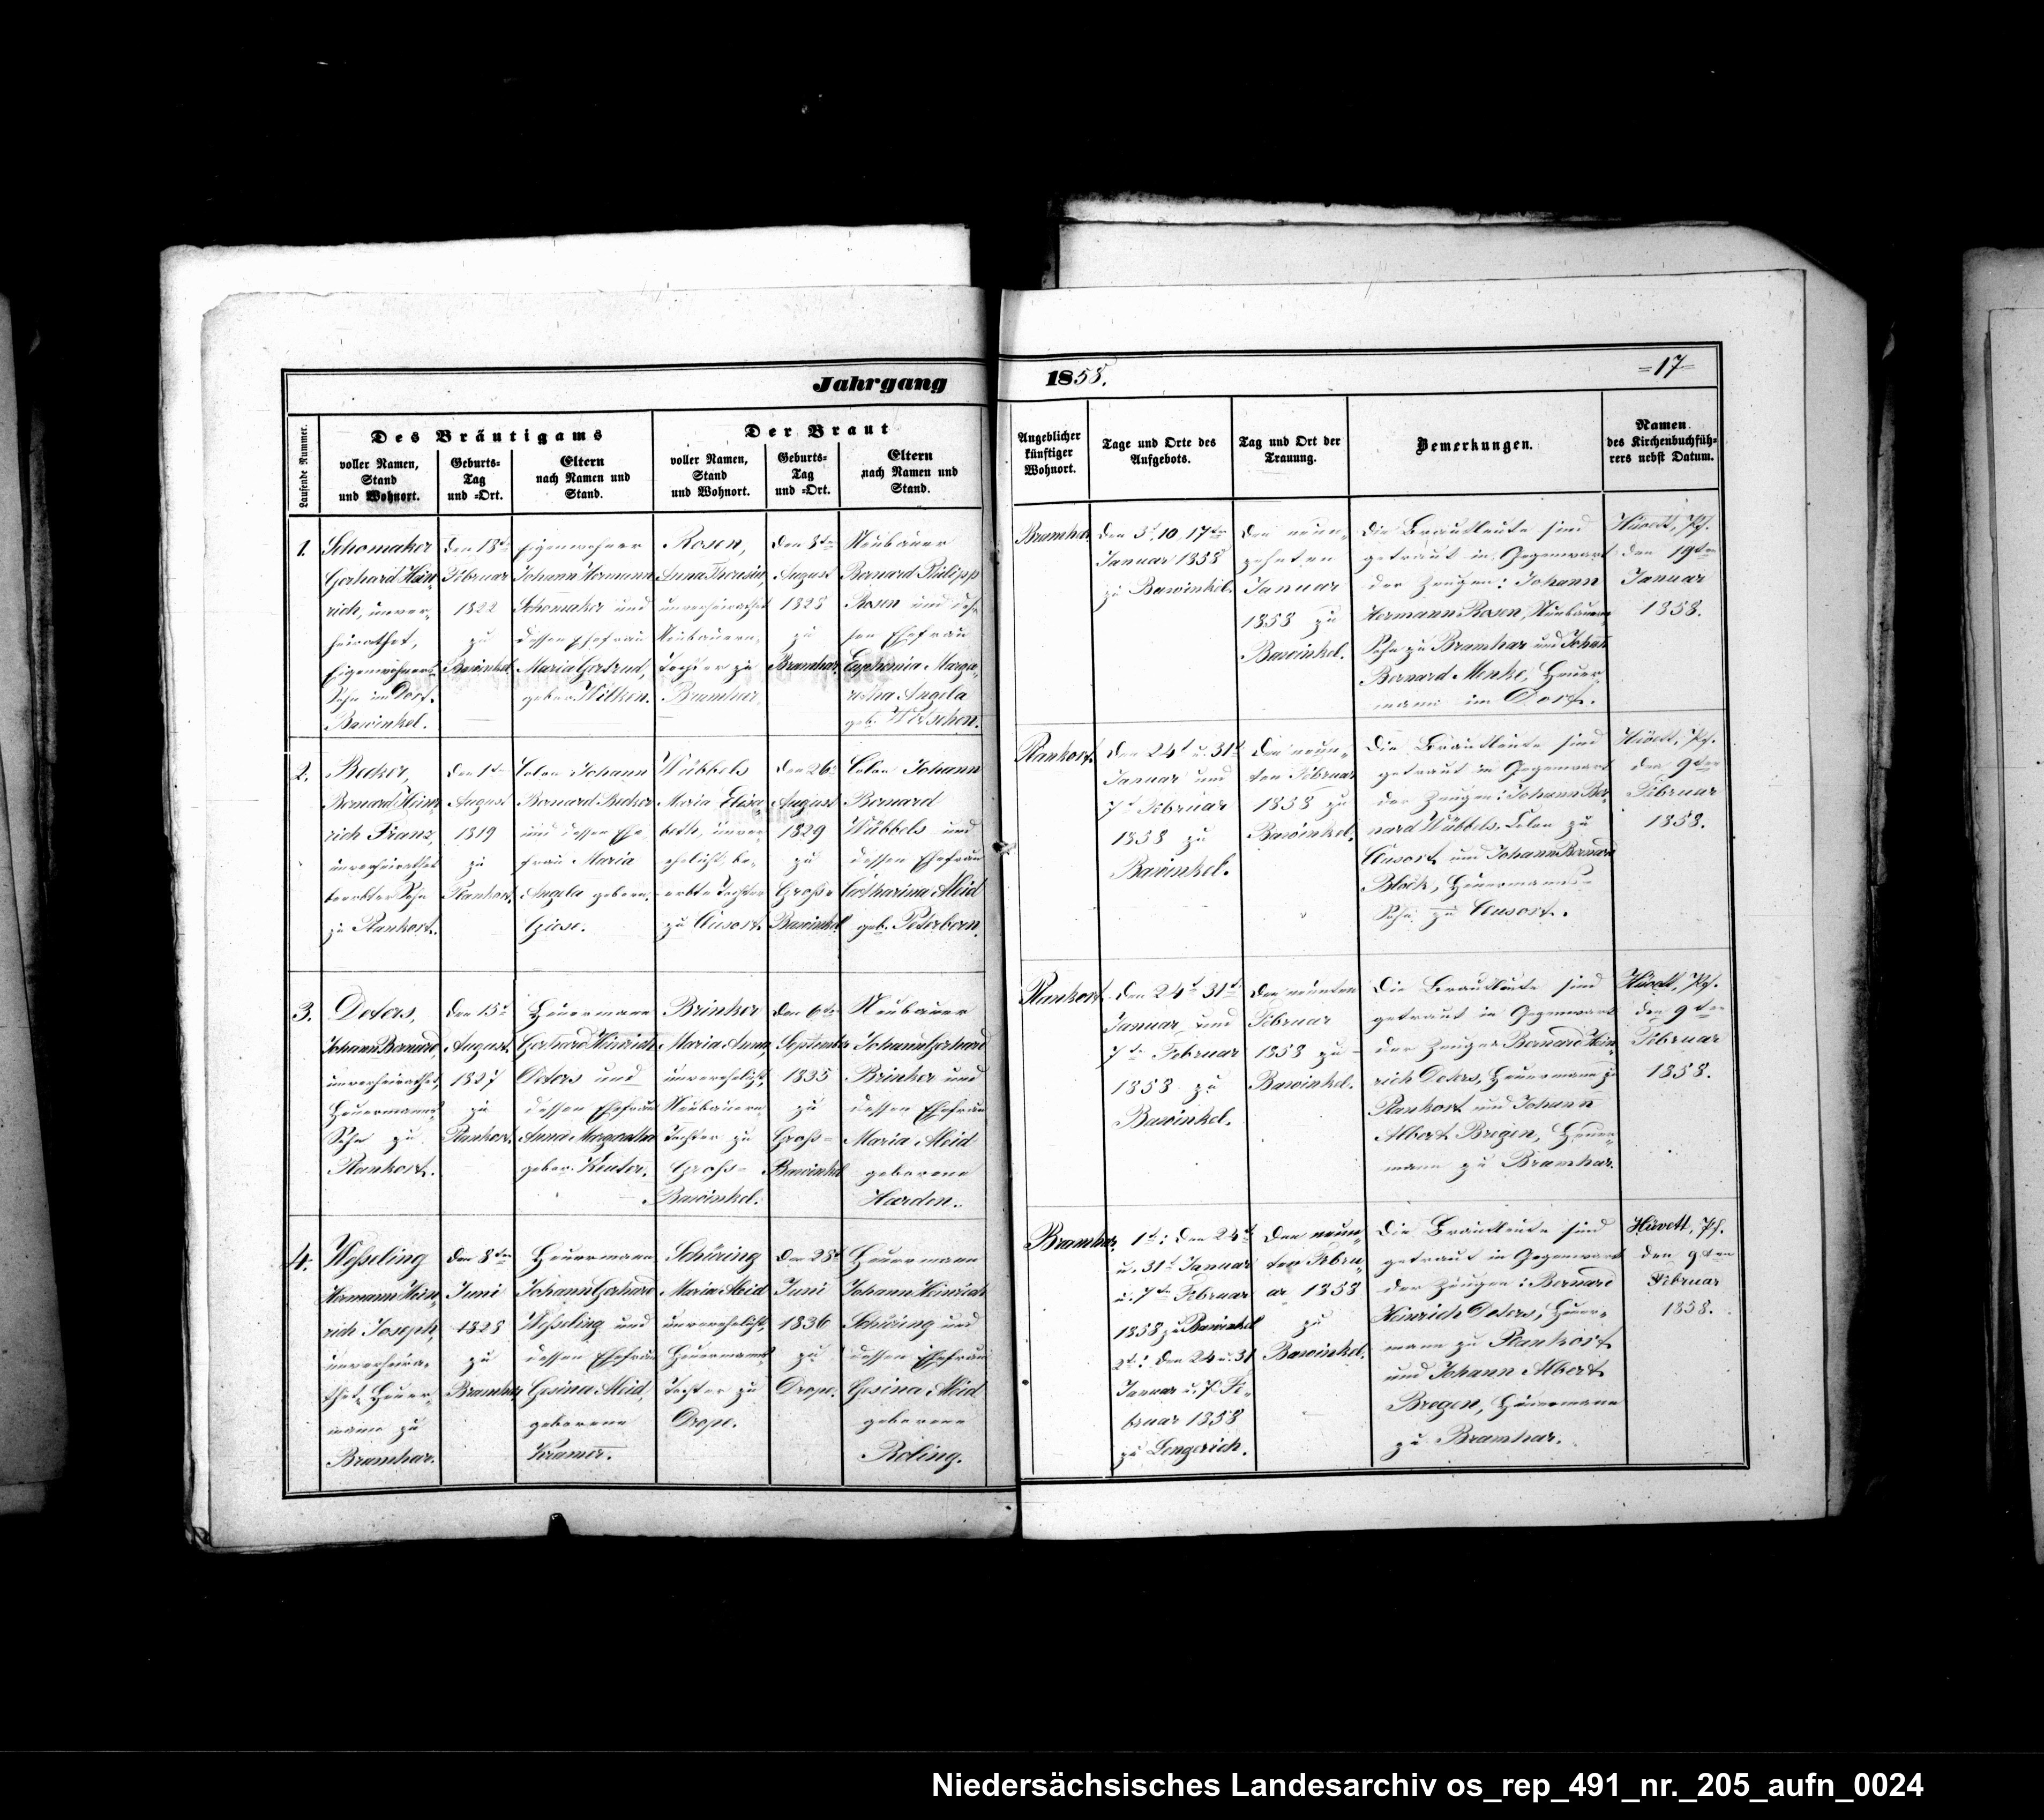 Jahrgang 1858.
=17=
Laufende Nummer.
Des Bräutigams
voller Namen,
Stand
und Wohnort.
Geburts-
Tag
und -Ort.
Eltern
nach Namen und
Stand.
Der Braut
voller Namen,
Stand
und Wohnort.
Geburts-
Tag
und -Ort.
Eltern
nach Namen und
Stand.
Angeblicher
künftiger
Wohnort.
Tage und Orte des
Aufgebots.
Tag und Ort der
Trauung.
Bemerkungen.
Namen
des Kirchenbuchfüh-
rers nebst Datum.
1.
Schomaker
Gerhard Hein-
rich, unver-
heirathet,
Eigenwohners
Sohn im Dorf
Bawinkel.
den 18ten
Februar
1822
zu
Bawinkel.
Eigenwohner
Johann Hermann
Schomaker und
dessen Ehefrau
Maria Gertrud,
gebor. Wilken.
Rosen,
Anna Theresia,
unverheirathet
Neubauern-
tochter zu
Bramhar.
den 8ten
August
1828
zu
Bramhar.
Neubauer
Bernard Philipp
Rosen und des-
sen Ehefrau
Euphemia Marga-
retha Angela
geb.
Bramhar
den 3t, 10, 17ten
Januar 1858
zu Bawinkel.
den neun-
zehnten
Januar
1858 zu
Bawinkel.
Die Brautleute sind
getraut in Gegenwart
der Zeugen: Johann
Hermann Rosen, Neubauern
Sohn zu Bramhar und Johann
Bernard Menke, Heuer-
mann im Dorf.
Hüvett, Pf.
den 19ten
Januar
1858.
2.
Becker,
Bernard Hein-
rich Franz,
unverheirathet
beerbter Sohn
zu Plankort.
den 1ten
August
1819
zu
Plankort.
Colon Johann
Bernard Becker
und dessen Ehe-
frau Maria
Angela geboren.
Giese.
Wübbels
Maria Elisa-
beth, unver-
ehelicht, be-
erbte Tochter
zu Clusort.
den 26t
August
1829
zu
Groß-
Bawinkel
Colon Johann
Bernard
Wübbels und
dessen Ehefrau
Catharina Aleid
geb. Peterbern.
Plankort.
den 24t u. 31t
Januar und
7t Februar
1858 zu
Bawinkel.
den neun-
ten Februar
1858 zu
Bawinkel.
Die Brautleute sind
getraut in Gegenwart
der Zeugen: Johann Ber-
nard Wübbels, Colon zu
Clusort, und Johann Bernard
Block, Heuermanns-
Sohn zu Clusort.
Hüvett, Pf.
den 9ten
Februar
1858.
3.
Deters,
Johann Bernard
unverheirathet,
Heuermanns
Sohn zu
Plankort.
den 15t
August
1827
zu
Plankort.
Heuermann
Gerhard Heinrich
Deters und
dessen Ehefrau
Anna Margaretha
gebor. Keuter.
Brinker
Maria Anna,
unverehelicht,
Neubauern
Tochter zu
Groß-
Bawinkel.
den 6ten
September
1835
zu
Groß-
Bawinkel
Neubauer
Johann Gerhard
Brinker und
dessen Ehefrau
Maria Aleid
geborene
Harden.
Plankort.
den 24t 31t
Januar und
7t Februar
1858 zu
Bawinkel.
den neunten
Februar
1858 zu
Bawinkel.
Die Brautleute sind
getraut in Gegenwart
der Zeugen Bernard Hein-
rich Deters, Heuermann zu
Plankort und Johann
Albert Bregen, Heuer-
mann zu Bramhar.
Hüvett, Pf.
den 9ten
Februar
1858.
4.
Weßeling
Hermann Hein-
rich Joseph,
unverheira-
thet, Heuer-
mann zu
Bramhar.
den 8ten
Juni
1828
zu
Bramhar
Heuermann
Johann Gerhard
Weßeling und
dessen Ehefrau
Gesina Aleid,
geborene
Kramer.
Schüring
Maria Aleid
unverehelicht,
Heuermanns
Tochter zu
Drope.
den 28t
Juni
1836
zu
Drope.
Heuermann
Johann Heinrich
Schüring und
dessen Ehefrau
Gesina Aleid
geborene
Roling.
Bramhar.
1t: den 24t
u. 31t Januar
u. 7ten Februar
1858 zu Bawinkel
2t: den 24 u. 31
Januar u. 7t Fe-
bruar 1858
zu Lengerich.
den neun-
ten Febru-
ar 1858
zu
Bawinkel.
Die Brautleute sind
getraut in Gegenwart
der Zeugen: Bernard
Heinrich Deters, Heuer-
mann zu Plankort
und Johann Albert
Bregen, Heuermann
zu Bramhar.
Hüvett, Pf.
den 9ten
Februar
1858.
Niedersächsisches Landesarchiv os_rep_491_nr._205_aufn_0024